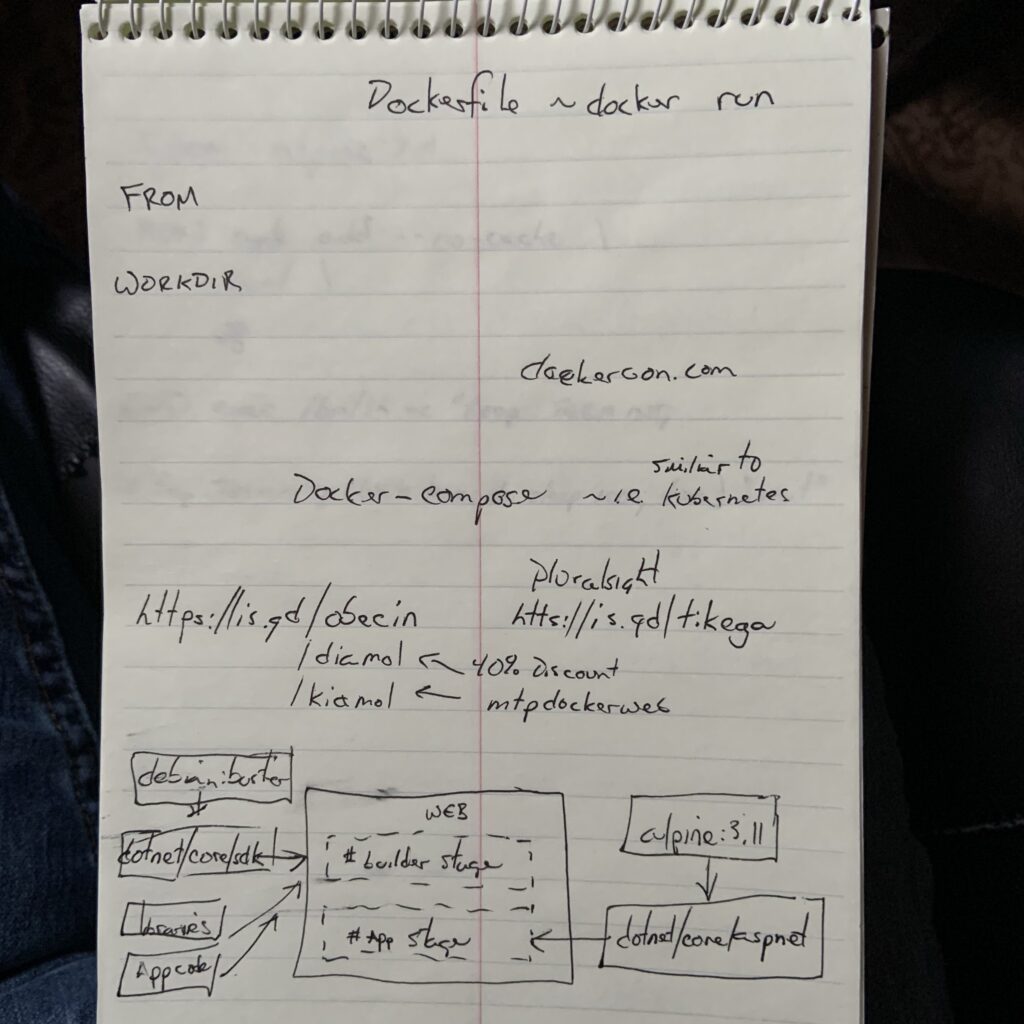 Dockerfile ~ docker run
FROM
WORKDIR
dockercon.com
similar to
Docker-compose ~ i.e. kubernetes
pluralsight
https://is.gd/obecin
htts://is.gd/tikega
/diamol ← 40% Discount
/kiamol ← mtpdockerweb
debian:buster
WEB
alpine:3.11
dotnet/core/sdk
# builder stage
libraries
# App stage
dotnet/core/aspnet
App code